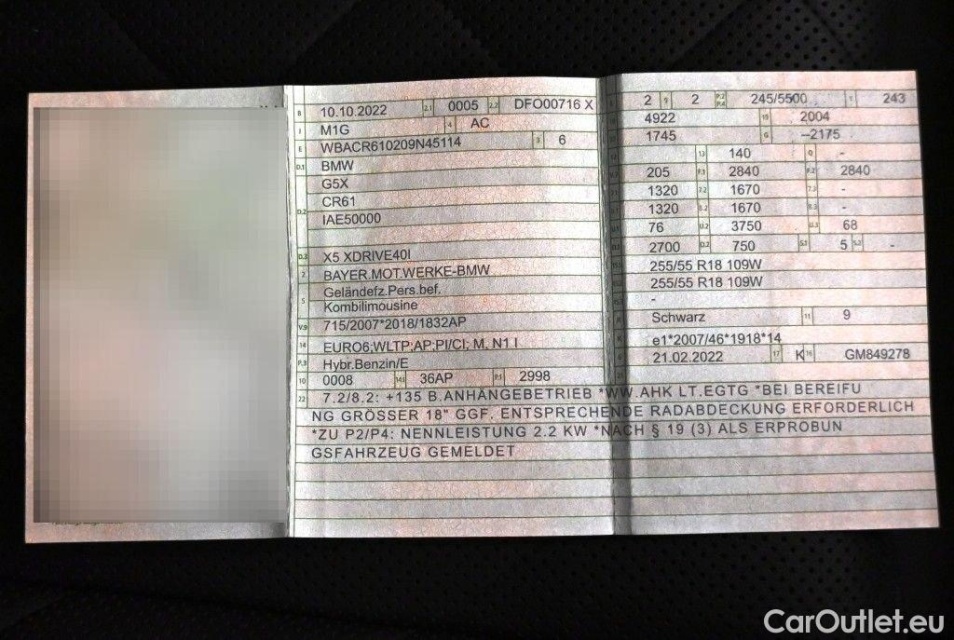 B 10.10.2022 2.1 0005 2.2 DFO00716 X
J M1G 4 AC
E WBACR610209N45114 3 6
D.1 BMW
G5X
D.2 CR61
IAE50000
D.3 X5 XDRIVE40I
2 BAYER.MOT.WERKE-BMW
5 Geländefz.Pers.bef.
Kombilimousine
V.9 715/2007*2018/1832AP
14 EURO6;WLTP;AP;PI/CI; M, N1 I
P.3 Hybr.Benzin/E
10 0008 14.1 36AP P.1 2998
22 7.2/8.2: +135 B.ANHÄNGEBETRIEB *WW.AHK LT.EGTG *BEI BEREIFU
NG GRÖSSER 18" GGF. ENTSPRECHENDE RADABDECKUNG ERFORDERLICH
*ZU P2/P4: NENNLEISTUNG 2.2 KW *NACH § 19 (3) ALS ERPROBUN
GSFAHRZEUG GEMELDET
2 9 2 P.2 P.4 245/5500 T 243
4922 19 2004
1745 G --2175
13 140 Q -
205 F.1 2840 F.2 2840
1320 7.2 1670 7.3 -
1320 8.2 1670 8.3 -
76 U.2 3750 U.3 68
2700 O.2 750 S.1 5 S.2 -
255/55 R18 109W
255/55 R18 109W
-
Schwarz 11 9
K e1*2007/46*1918*14
21.02.2022 17 K 16 GM849278
CarOutlet.eu